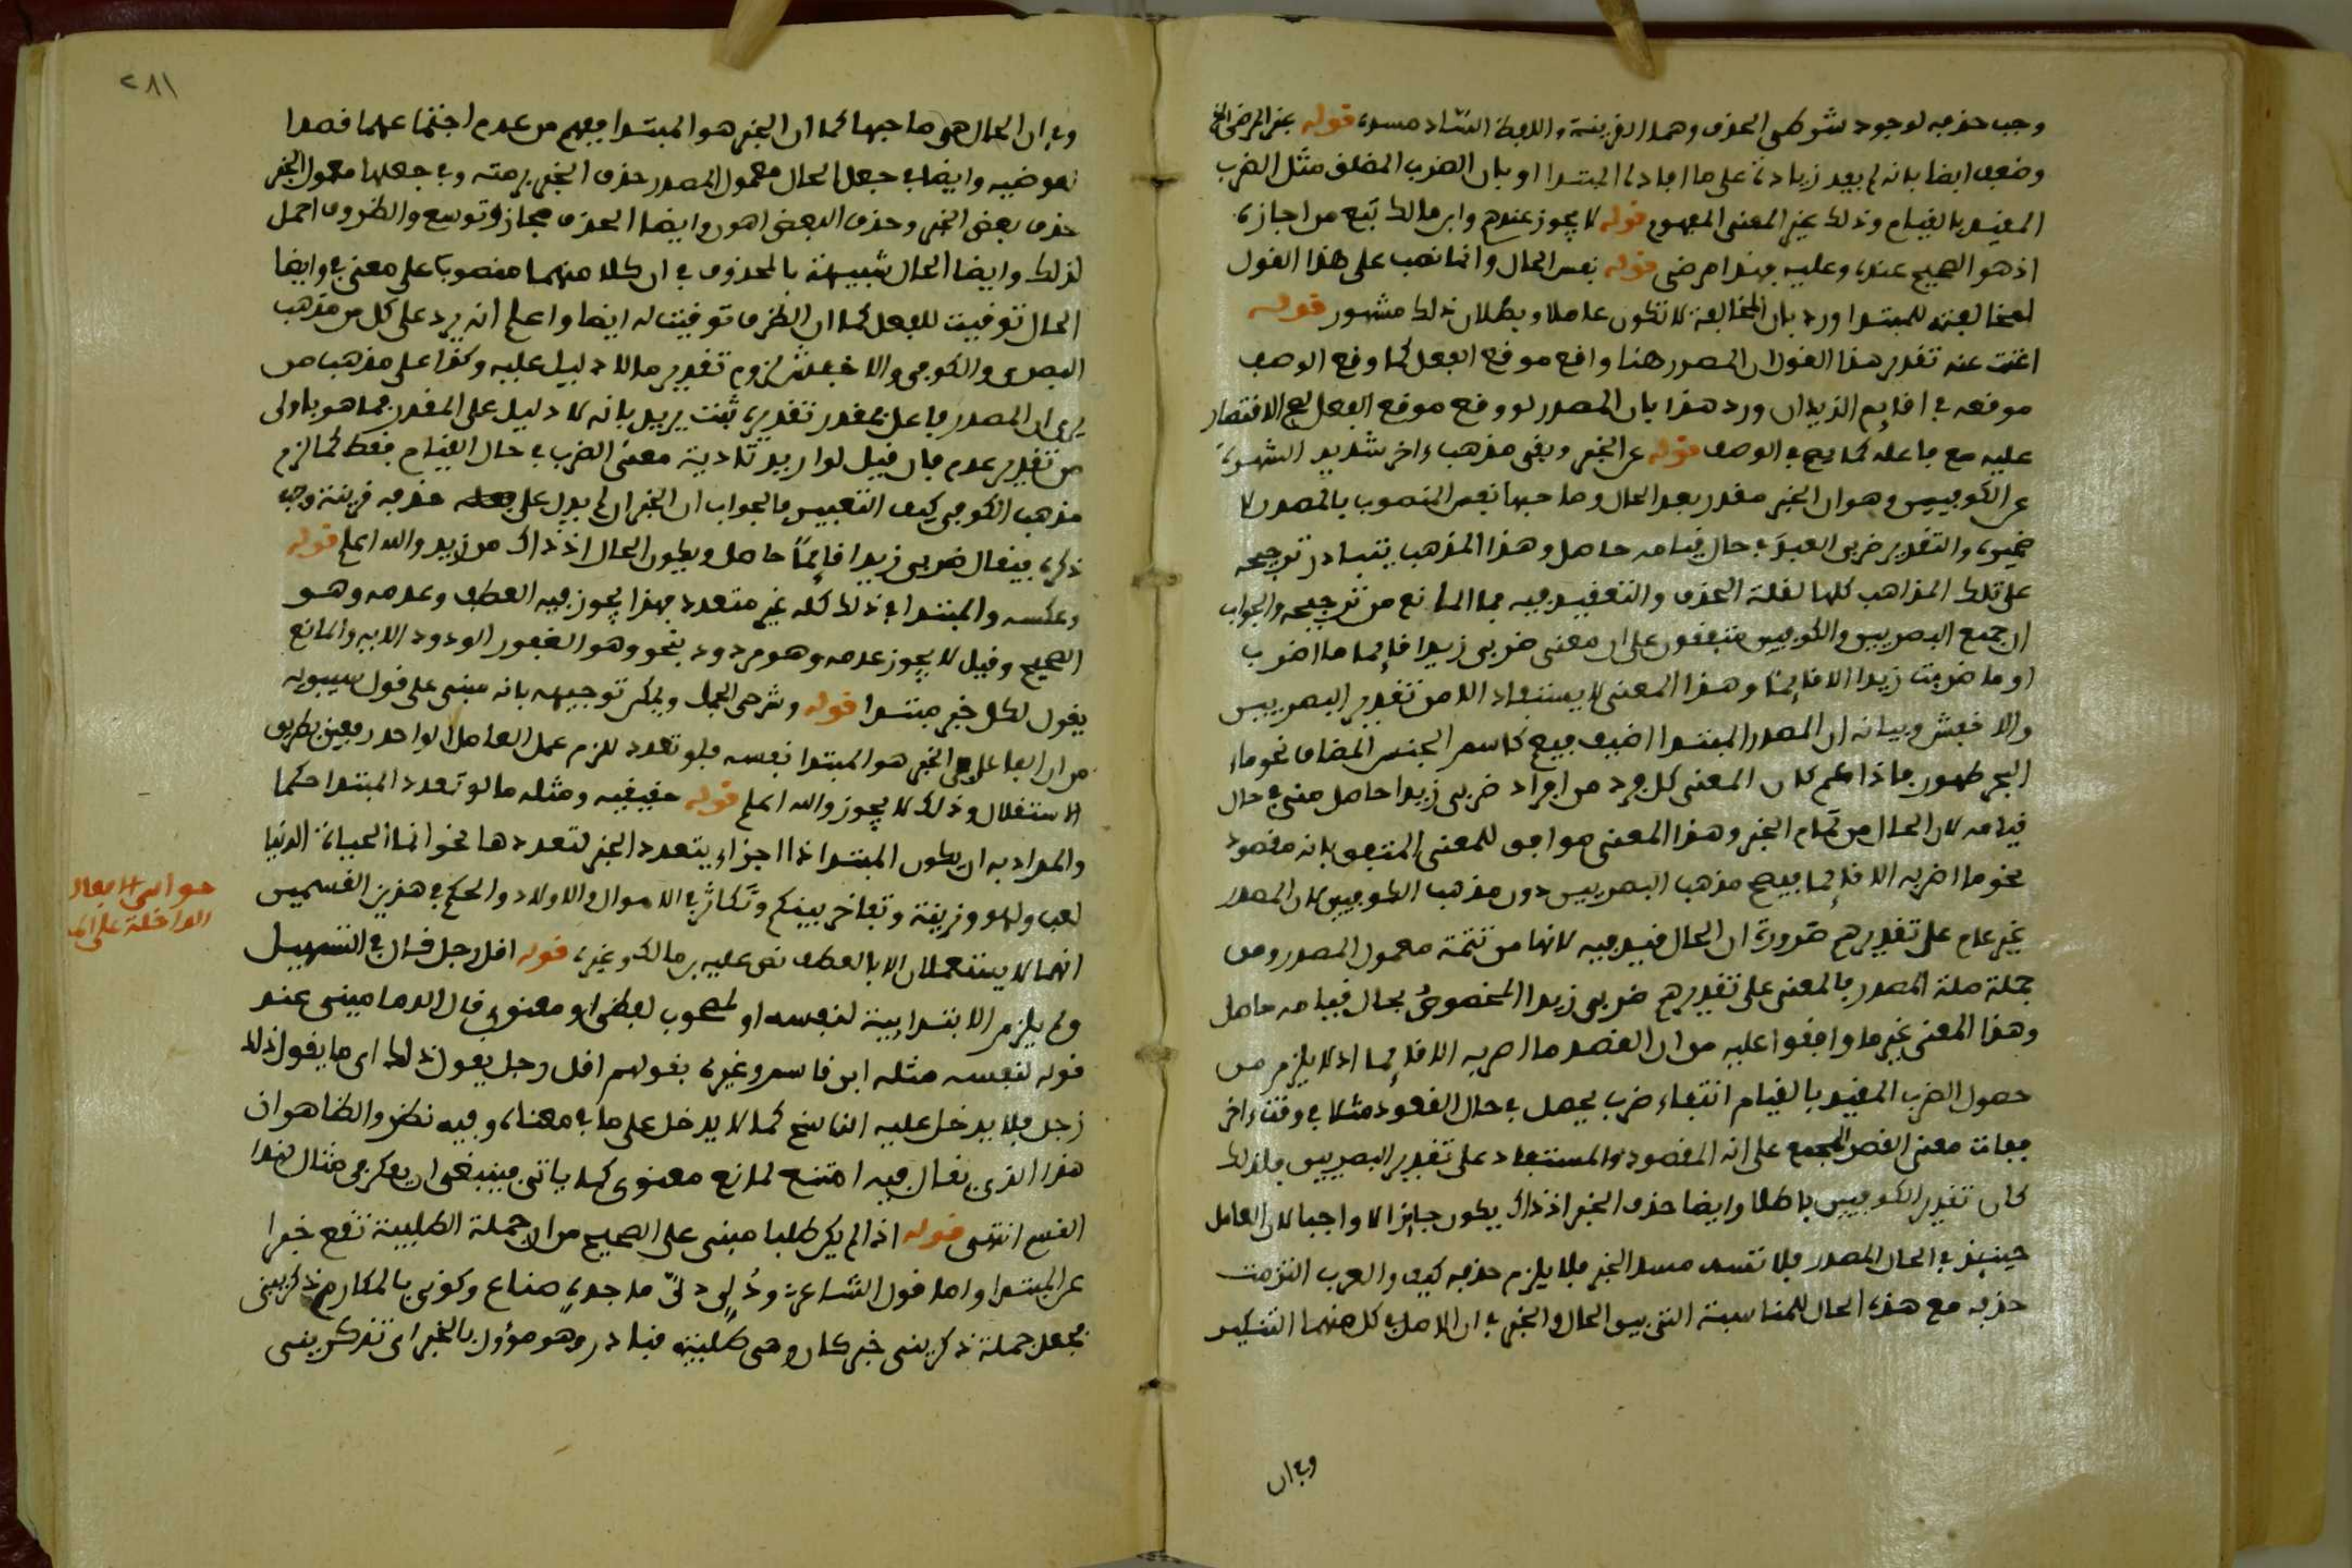 وجب حذفه لوجود شرطي الحذف وهما القرينة واللفظ الساد مسده قوله عن الرضي الخ
وضعف ايضا بانه لم يفد زيادة على ما افاده المبتدا او بان الضرب المطلق مثل الضرب
المقيد بالقيام وذلك غير المعنى المفهوم قوله لا يجوز عندهم وابن مالك تبع من اجازه
اذ هو الصحيح عنده وعليه فهذا مرضي قوله نفس الحال وانما نصب على هذا القول
لمخالفته للمبتدا ورد بان المخالفة لا تكون عاملا وبطلان ذلك مشهور قوله
اغنت عنه تقدير هذا القول ان المصدر هنا واقع موقع الفعل كما وقع الوصف
موقعه في اقايم الزيدان ورد هذا بان المصدر لو وقع موقع الفعل لصح الاقتصار
عليه مع فاعله كما يصح في الوصف قوله عن الخبر وبقي مذهب ءاخر شديد الشهرة
عن الكوفيين وهو ان الخبر مقدر بعد الحال وصاحبها نفس المنصوب بالمصدر لا
ضميره والتقدير ضربي العبد في حال قيامه حاصل وهذا المذهب يتبادر ترجيحه
على تلك المذاهب كلها لقلة الحذف والتعقيد فيه فما المانع من ترجيحه والجواب
ان جميع البصريين والكوفيين متفقون على ان معنى ضربي زيدا قايما ما اضرب
او ما ضربت زيدا الا قايما وهذا المعنى لا يستفاد الا من تقدير البصريين
والاخفش وبيانه ان المصدر المبتدا اضيف فيعم كاسم الجنس المضاف نحو ماء
البحر طهور فاذا عم كان المعنى كل فرد من افراد ضربي زيدا حاصل مني في حال
قيامه لان الحال من تمام الخبر وهذا المعنى موافق للمعنى المتفق بانه مقصود
نحو ما اضربه الا قايما فيصح مذهب البصريين دون مذهب الكوفيين لان المصدر
غير عام على تقديرهم ضرورة ان الحال قيد فيه لانها من تتمة معمول المصدر ومن
جملة صلة المصدر فالمعنى على تقديرهم ضربي زيدا المخصوص بحال قيامه حاصل
وهذا المعنى غير ما وافقوا عليه من ان القصد ما اضربه الا قايما اذ لا يلزم من
حصول الضرب المقيد بالقيام انتفاء ضرب يحصل في حال القعود مثلا في وقت ءاخر
ففات معنى القصر المجمع على انه المقصود والمستفاد على تقدير البصريين فلذلك
كان تقدير الكوفيين باطلا وايضا حذف الخبر اذ ذاك يكون جايزا لا واجبا لان العامل
حينيذ في الحال المصدر فلا تسد مسد الخبر فلا يلزم حذفه كيف والعرب التزمت
حذفه مع هذه الحال للمناسبة التي بين الحال والخبر في ان الاصل في كل منهما التنكير
وفي ان
٢٨١
وفي ان الحال هي صاحبها كما ان الخبر هو المبتدا فيفهم من عدم اجتماعهما قصدا
تعوضيه وايضا في جعل الحال معمول المصدر حذف الخبر برمته وفي جعلها معمول الخبر
حذف بعض الخبر وحذف البعض اهون وايضا الحذف مجاز وتوسع والظروف احمل
لذلك وايضا الحال شبيهة بالمحذوف في ان كلا منهما منصوبا على معنى في وايضا
الحال توقيت للفعل كما ان الظرف توقيت له ايضا واعلم انه يرد على كل من مذهب
البصري والكوفي والاخفش لزوم تقدير ما لا دليل عليه وكذا على مذهب من
يرى ان المصدر فاعل بمقدر تقديره ثبت يريد بانه لا دليل على المقدر فما هو باولى
من تقدير عدم فان قيل لو اريد تادية معنى الضرب في حال القيام فقط كما لزم
مذهب الكوفي كيف التعبير فالجواب ان الخبر ان لم يدل على حذفه قرينة وجب
ذكره فيقال ضربي زيدا قايما حاصل ويكون الحال اذ ذاك من زيد والله اعلم قوله
وعكسه والمبتدا في ذلك كله غير متعدد فهذا يجوز فيه العطف وعدمه وهو
الصحيح وقيل لا يجوز عدمه وهو مردود بنحو وهو الغفور الودود الايه والمانع
يقول لكل خبر مبتدا قوله وشرحي الجمل ويمكن توجيهه بانه مبني على قول سيبويه
من ان العامل في الخبر هو المبتدا نفسه فلو تعدد للزم عمل العامل الواحد رفعين بطريق
الاستقلال وذلك لا يجوز والله اعلم قوله حقيقيه ومثله ما لو تعدد المبتدا حكما
والمراد به ان يكون المبتدا ذا اجزاء يتعدد الخبر لتعددها نحو انما الحياة الدنيا
لعب ولهو وزينة وتفاخر بينكم وتكاثر في الاموال والاولاد والحكم في هذين القسمين
انهما لا يستعملان الا بالعطف نص عليه بن مالك وغيره قوله اقل رجل قال في التسهيل
ولم يلزم الابتدايية لنفسه او لمصحوب لفظي او معنوي قال الدماميني عند
قوله لنفسه مثله ابن قاسم وغيره بقولهم اقل رجل يقول ذلك اي ما يقول ذلك
رجل فلا يدخل عليه الناسخ كما لا يدخل على ما في معناه وفيه نظر والظاهر ان
هذا الذي يقال فيه امتنع لمانع معنوي كما ياتي فينبغي ان يفكر في مثال لهذا
القسم انتهى قوله اذا لم يكن طلبا مبني على الصحيح من ان جملة الطلبية تقع خبرا
عن المبتدا واما قول الشاعر ودلي دل ماجدة صناع وكوني بالمكارم ذكريني
فجعل جملة ذكريني خبر كان وهي طلبية فنادر وهو مؤول بالخبر اي تذكريني
الداخلة على